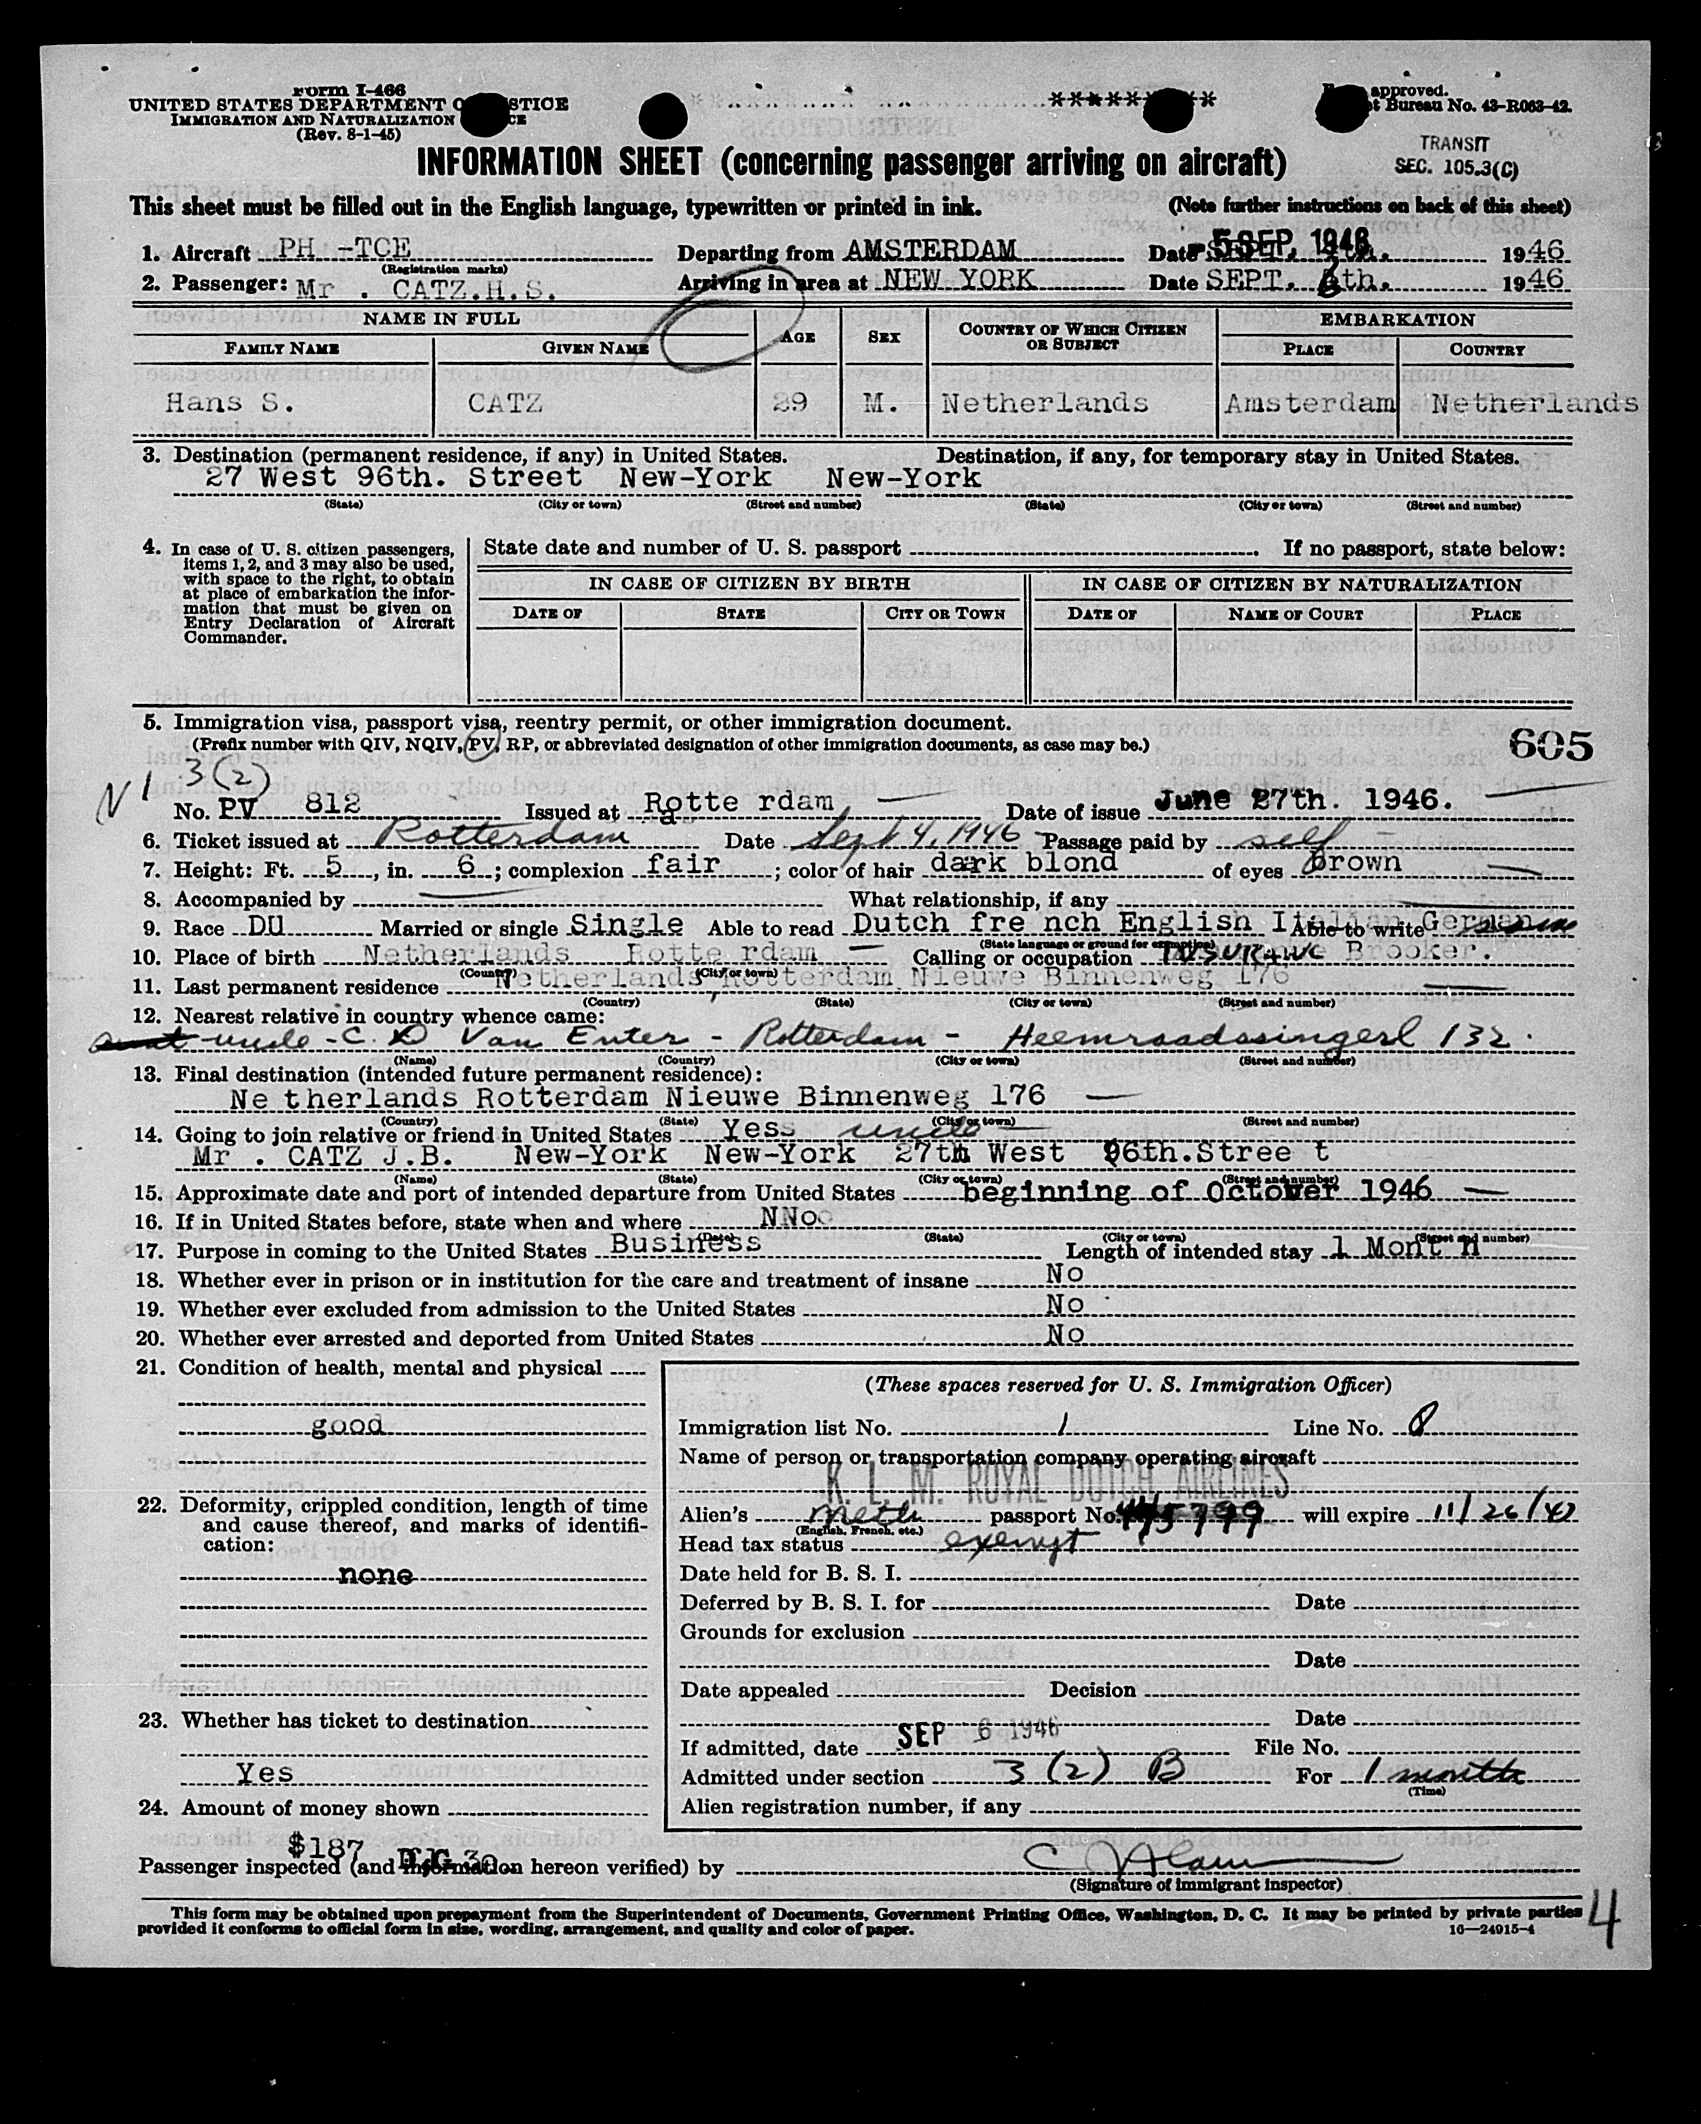 Form I-466
UNITED STATES DEPARTMENT OF JUSTICE
IMMIGRATION AND NATURALIZATION
(Rev. 8-1-45)
approved.
Bureau No. 43-R063-42.
TRANSIT
SEC. 105.3(C)
INFORMATION SHEET (concerning passenger arriving on aircraft)
This sheet must be filled out in the English language, typewritten or printed in ink. (Note further instructions on back of this sheet)
1. Aircraft PH -TCE Departing from AMSTERDAM Date 5 SEP. 1946 1946
(Registration marks)
2. Passenger: Mr . CATZ.H.S. Arriving in area at NEW YORK Date SEPT. 6th. 1946
NAME IN FULL AGE SEX COUNTRY OF WHICH CITIZEN OR SUBJECT EMBARKATION
FAMILY NAME GIVEN NAME PLACE COUNTRY
Hans S. CATZ 29 M. Netherlands Amsterdam Netherlands
3. Destination (permanent residence, if any) in United States. Destination, if any, for temporary stay in United States.
27 West 96th. Street New-York New-York
(State) (City or town) (Street and number) (State) (City or town) (Street and number)
4. In case of U. S. citizen passengers, items 1, 2, and 3 may also be used, with space to the right, to obtain at place of embarkation the information that must be given on Entry Declaration of Aircraft Commander.
State date and number of U. S. passport . If no passport, state below:
IN CASE OF CITIZEN BY BIRTH IN CASE OF CITIZEN BY NATURALIZATION
DATE OF STATE CITY OR TOWN DATE OF NAME OF COURT PLACE
5. Immigration visa, passport visa, reentry permit, or other immigration document.
(Prefix number with QIV, NQIV, PV, RP, or abbreviated designation of other immigration documents, as case may be.)
605
3(2)
No. PV 812 Issued at Rotte rdam Date of issue June 27th. 1946.
6. Ticket issued at Rotterdam Date Sept 4, 1946 Passage paid by self
7. Height: Ft. 5, in. 6; complexion fair; color of hair dark blond of eyes brown
8. Accompanied by What relationship, if any
9. Race DU Married or single Single Able to read Dutch fre nch English Italian German Able to write same
(State language or ground for exemption)
10. Place of birth Netherlands Rotte rdam Calling or occupation INSURANC Brooker.
(Country) (City or town)
11. Last permanent residence Netherlands Rotterdam Nieuwe Binnenweg 176
(Country) (State) (City or town) (Street and number)
12. Nearest relative in country whence came:
aunt uncle - C. D Van Enter - Rotterdam - Heemraadssingel 132.
(Name) (Country) (City or town) (Street and number)
13. Final destination (intended future permanent residence):
Ne therlands Rotterdam Nieuwe Binnenweg 176
(Country) (State) (City or town) (Street and number)
14. Going to join relative or friend in United States Yes uncle
Mr . CATZ J.B. New-York New-York 27th West 96th.Stree t
(Name) (State) (City or town) (Street and number)
15. Approximate date and port of intended departure from United States beginning of October 1946
16. If in United States before, state when and where No
(Date) (State) (City or town) (Street and number)
17. Purpose in coming to the United States Business Length of intended stay 1 Mont h
18. Whether ever in prison or in institution for the care and treatment of insane No
19. Whether ever excluded from admission to the United States No
20. Whether ever arrested and deported from United States No
21. Condition of health, mental and physical
good
22. Deformity, crippled condition, length of time and cause thereof, and marks of identification:
none
23. Whether has ticket to destination
Yes
24. Amount of money shown
$187
(These spaces reserved for U. S. Immigration Officer)
Immigration list No. 1 Line No. 8
Name of person or transportation company operating aircraft
K. L. M. ROYAL DUTCH AIRLINES
Alien's Neth passport No. 445799 will expire 11/26/47
(English, French, etc.)
Head tax status exempt
Date held for B. S. I.
Deferred by B. S. I. for Date
Grounds for exclusion
Date
Date appealed Decision
Date
If admitted, date SEP 6 1946 File No.
Admitted under section 3 (2) B For 1 month
(Time)
Alien registration number, if any
Passenger inspected (and information hereon verified) by
(Signature of immigrant inspector)
This form may be obtained upon prepayment from the Superintendent of Documents, Government Printing Office, Washington, D. C. It may be printed by private parties
provided it conforms to official form in size, wording, arrangement, and quality and color of paper. 16—24915-4
4